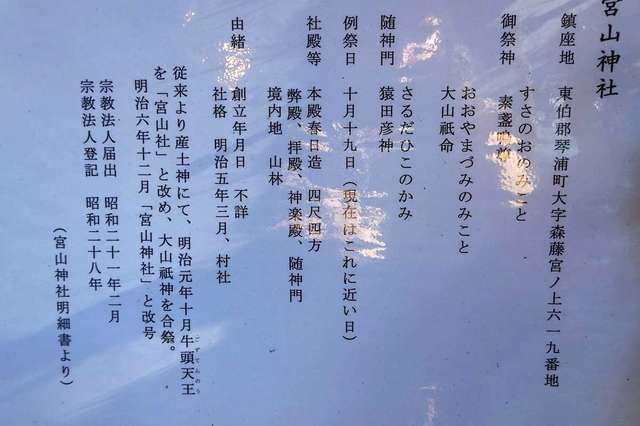 宮山神社
鎮座地　東伯郡琴浦町大字森藤宮ノ上六一九番地
すさのおのみこと
御祭神　素盞嗚尊
おおやまづみのみこと
大山祇命
さるだひこのかみ
随神門　猿田彦神
例祭日　十月十九日（現在はこれに近い日）
社殿等　本殿春日造　四尺四方
幣殿、拝殿、神楽殿、随神門
境内地　山林
由緒　創立年月日　不詳
社格　明治五年三月、村社
従来より産土神にて、明治元年十月牛頭天王
ごずてんのう
を「宮山社」と改め、大山祇神を合祭。
明治六年十二月「宮山神社」と改号
宗教法人届出　昭和二十一年二月
宗教法人登記　昭和二十八年
（宮山神社明細書より）